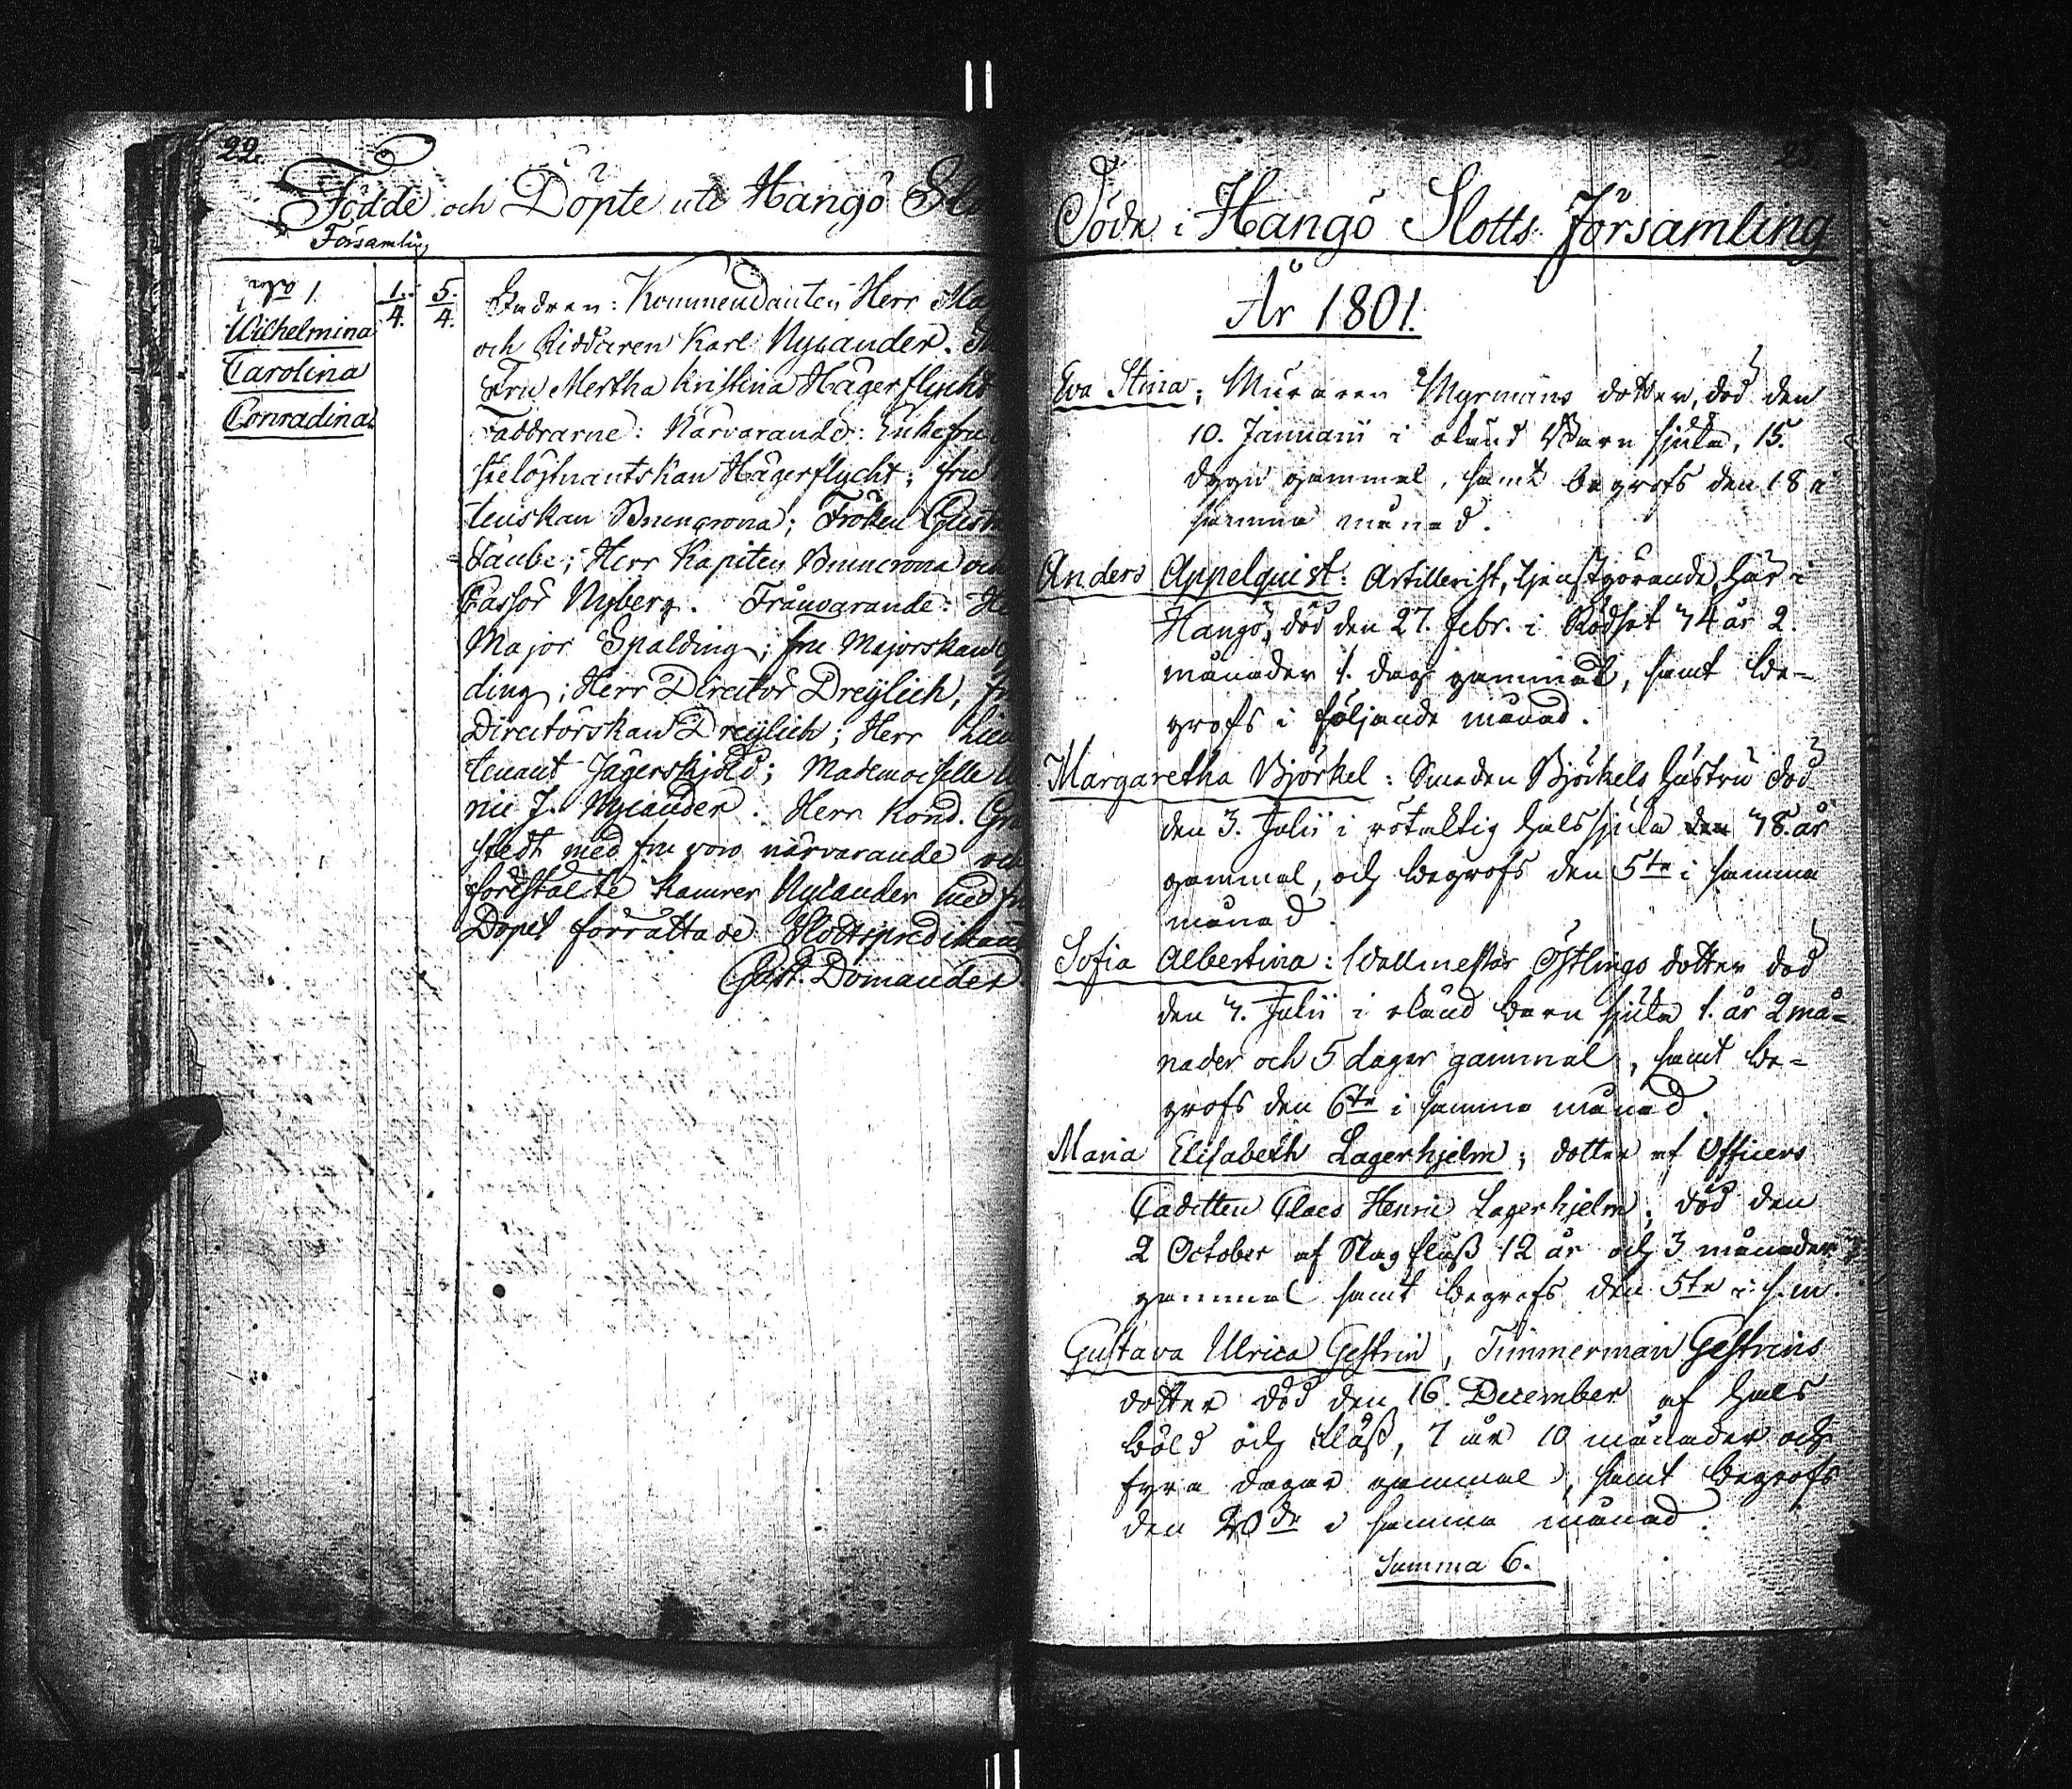 22.
Födde och Döpte uti Hangö
Församling
No 1.
Wilhelmina
Carolina
Conradina
1. 5.
4. 4.
Fadren: Kommendanten Herr
och Riddaren Karl Nylander.
Fru Mertha Kristina Hägerflycht
Faddrarne: Närvarande: Enkefru
Hägerflycht; fru
Fröken
Taube; Herr Kapiten
Cassör Nyberg. Frånvarande:
Major Spalding; fru Majorskan
ding; Herr Director Dreÿlich,
Directörskan Dreÿlich; Herr Lieu
tenant Jägerskjöld; Mademoiselle
J. Nylander. Herr Kond.
stedt med fru voro närvarande och
förestälte Kamrer Nylander med
Dopet förrättade Slottspredikant
Gust. Domander
Döde i Hangö Slotts Församling
År 1801.
Eva Stina; Muraren Myrmans dotter, död den
10. Januarii i okänd Barn sjuka, 15.
dygn gammal, samt begrofs den 18 i
samma månad.
Anders Appelquist: Artillerist, tjenstgörande här i
Hangö, död den 27. febr. i Rödsot 74 år 2.
månader 1. dag gammal, samt be-
grofs i följande månad.
Margaretha Björkel: Smeden Björkels hustru död
den 3. Julii i rötaktig halssjuka 78. år
gammal, och begrofs den 5te i samma
månad.
Sofia Albertina: Wallmestar Östlings dotter död
den 4. Julii i okänd barn sjuka 1. år 2 må-
nader och 5 dagar gammal, samt be-
grofs den 6te i samma månad.
Maria Elisabeth Lagerhjelm; dotter af Officers
Cadetten Claes Henric Lagerhjelm; död den
2 October af Slag fluß 12 år och 3 månader
gammal samt begrofs den 5te i s.m.
Gustava Ulrica Gestrin, Timmerman Gestrins
dotter död den 16. December af hals
böld och fluß, 7 år 10 månader och
fyra dagar gammal, samt begrofs
den 20de i samma månad.
Summa 6.